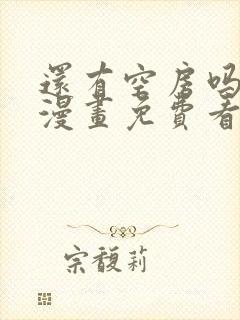 還有空房吗
漫畫免費看
宗馥莉